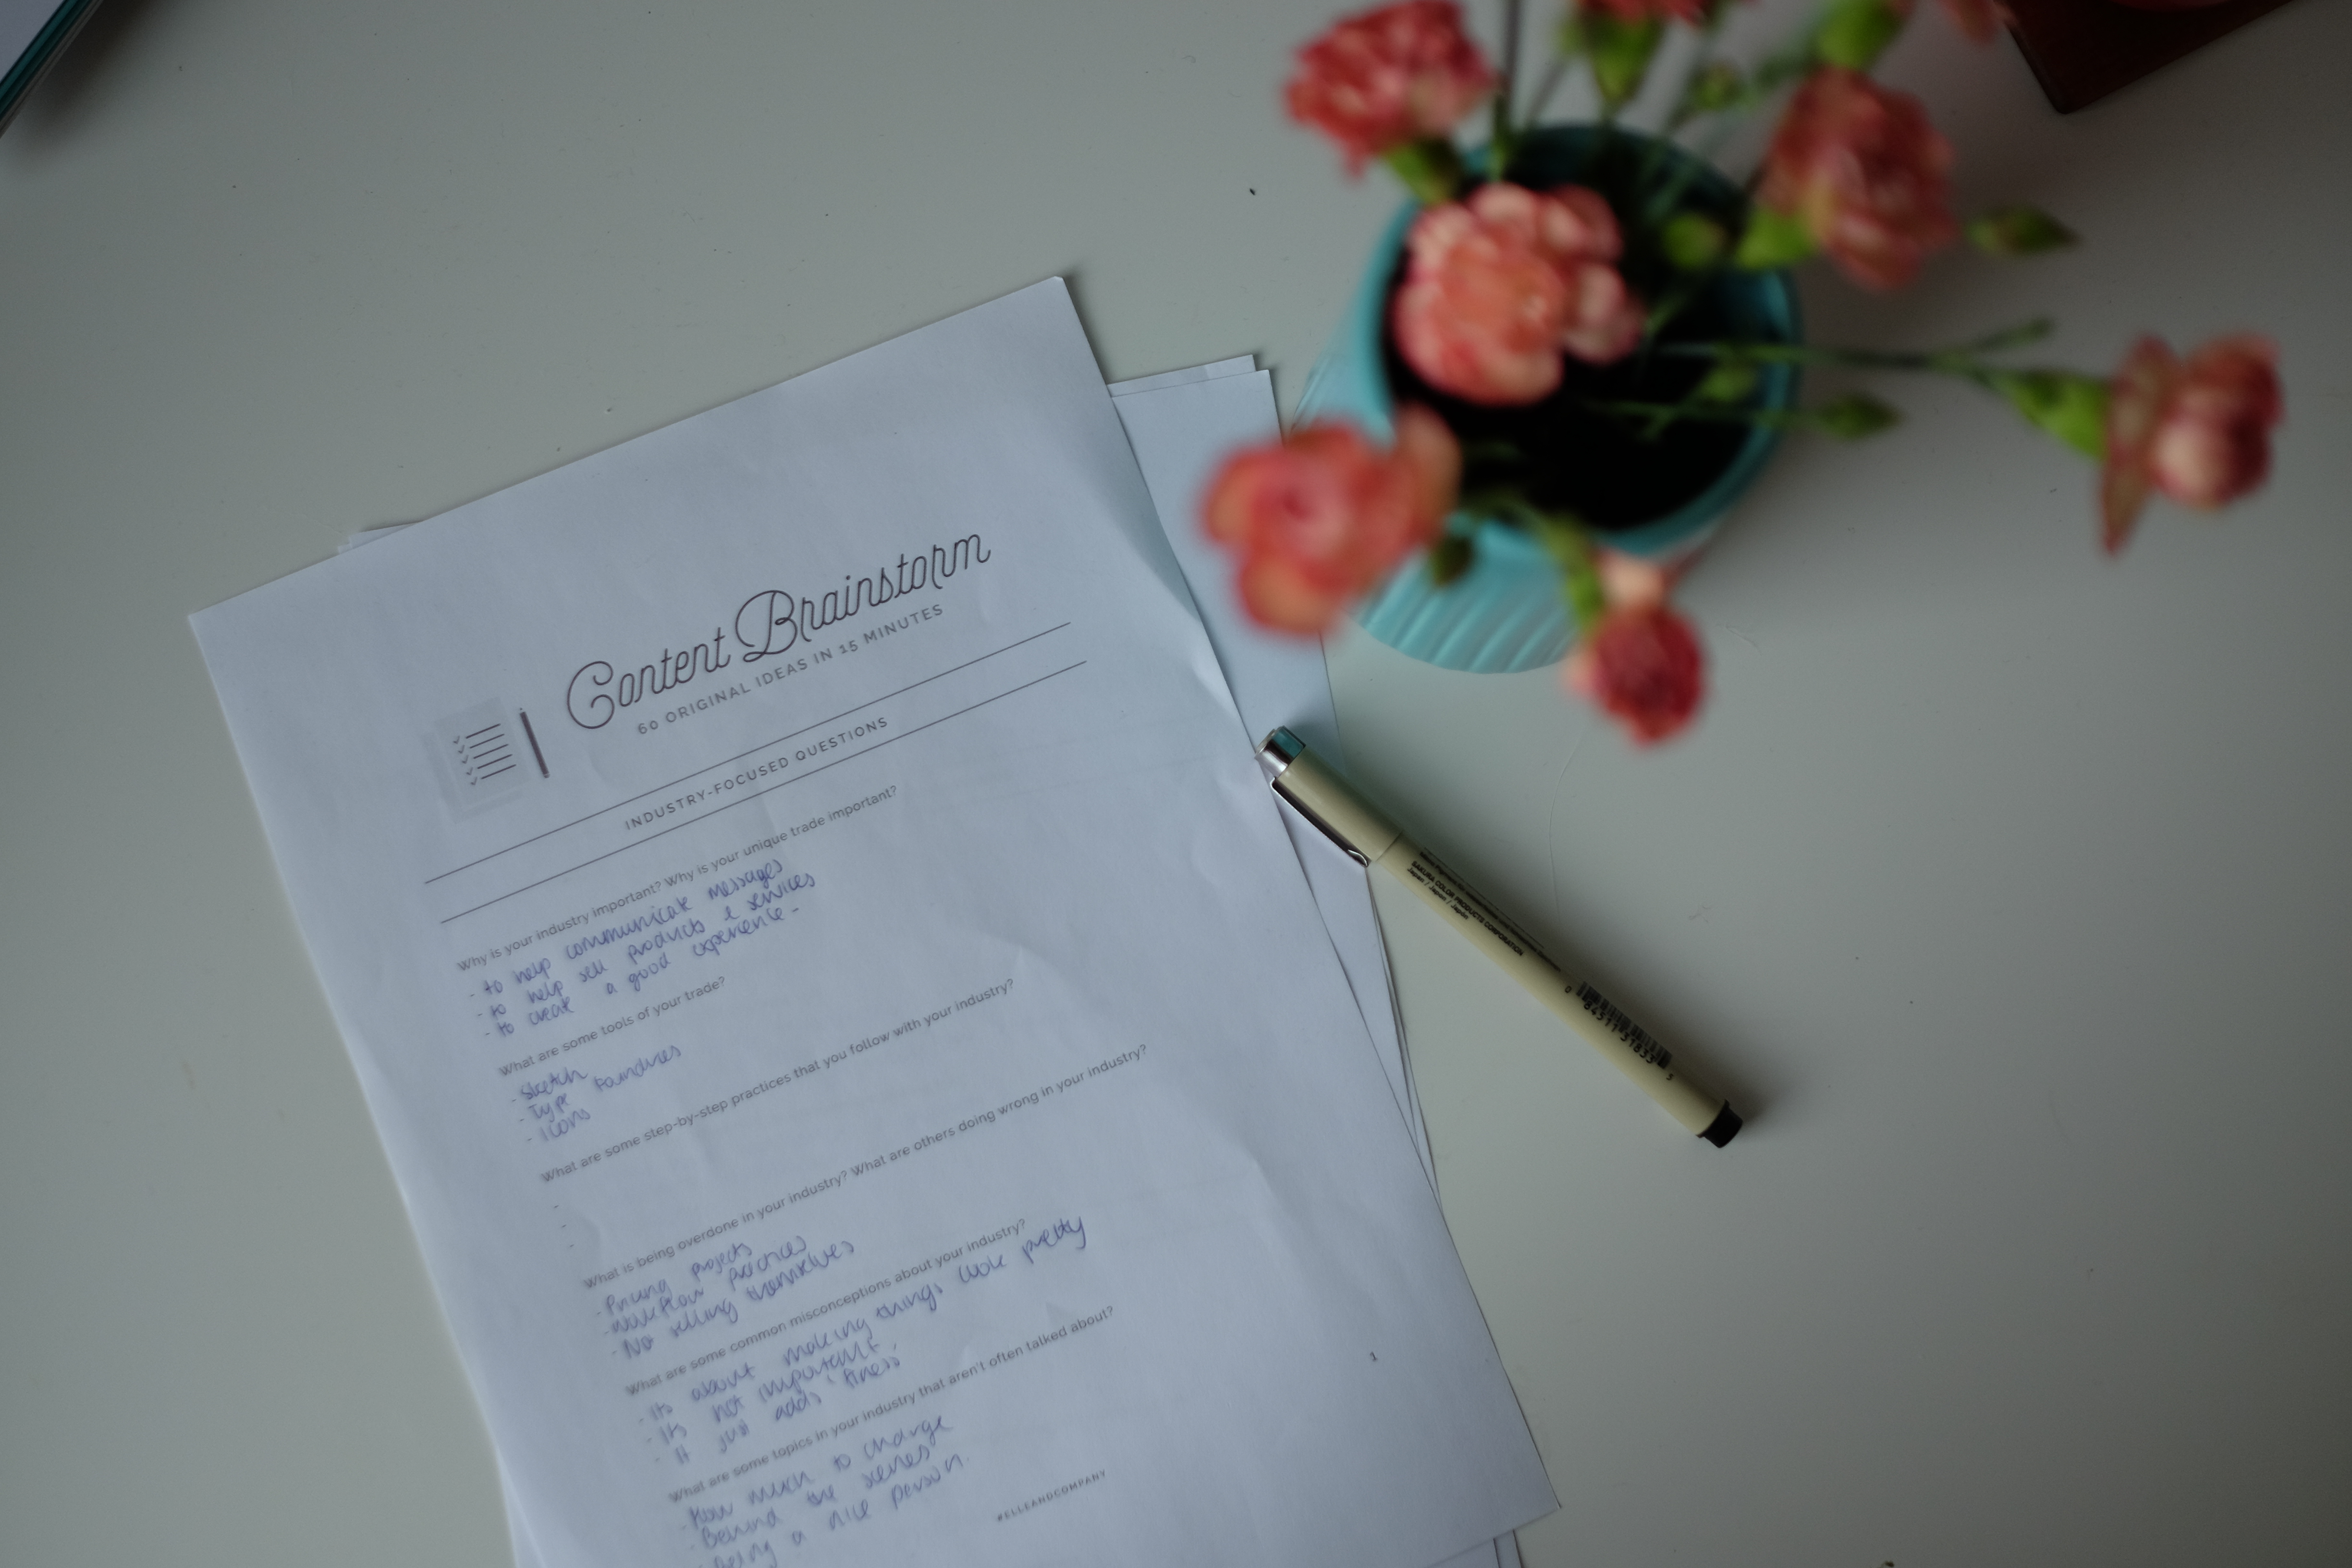 Content Brainstorm
60 ORIGINAL IDEAS IN 15 MINUTES
INDUSTRY-FOCUSED QUESTIONS
Why is your industry important? Why is your unique trade important?
- to help communicate messages
- to help sell products & services
- to create a good experience -
What are some tools of your trade?
- Sketch
- Type foundries
- Icons
What are some step-by-step practices that you follow with your industry?
-
-
-
What is being overdone in your industry? What are others doing wrong in your industry?
- Pricing projects
- Workflow practices
- Not selling themselves
What are some common misconceptions about your industry?
- Its about making things look pretty
- Its not important
- It just adds 'finess'
What are some topics in your industry that aren't often talked about?
- How much to charge
- Behind the scenes
- Being a nice person.
#ELLEANDCOMPANY
1
SAKURA COLOR PRODUCTS CORPORATION
Japan / Japon / Japón
0 84511 31833 5